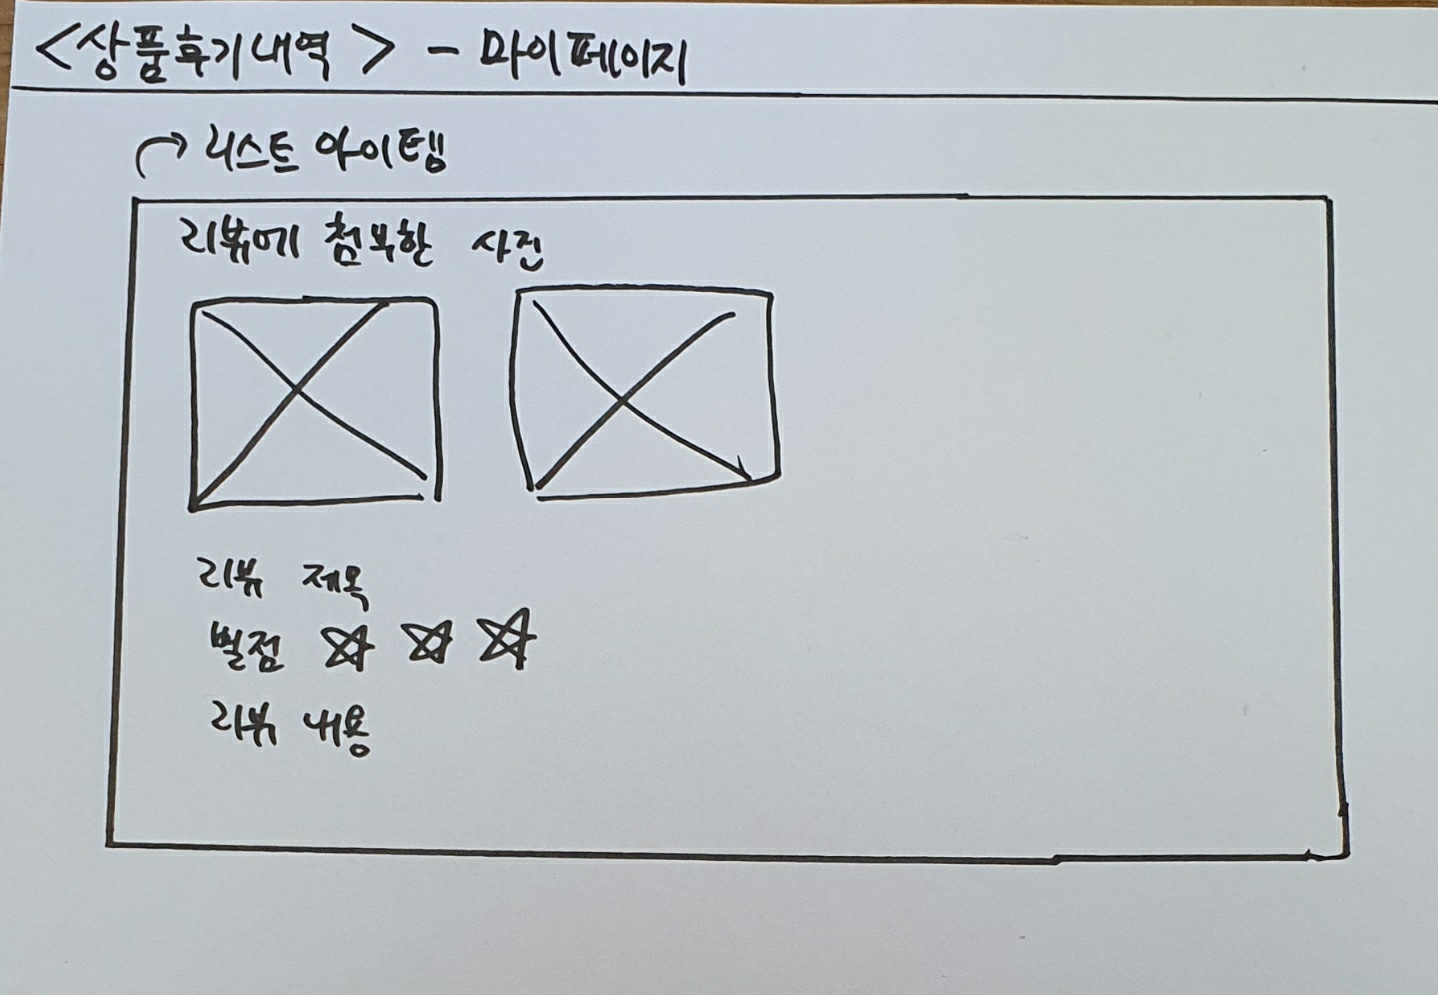 <상품후기내역> - 마이페이지
리스트 아이템
리뷰에 첨부한 사진
리뷰 제목
별점 ☆ ☆ ☆
리뷰 내용